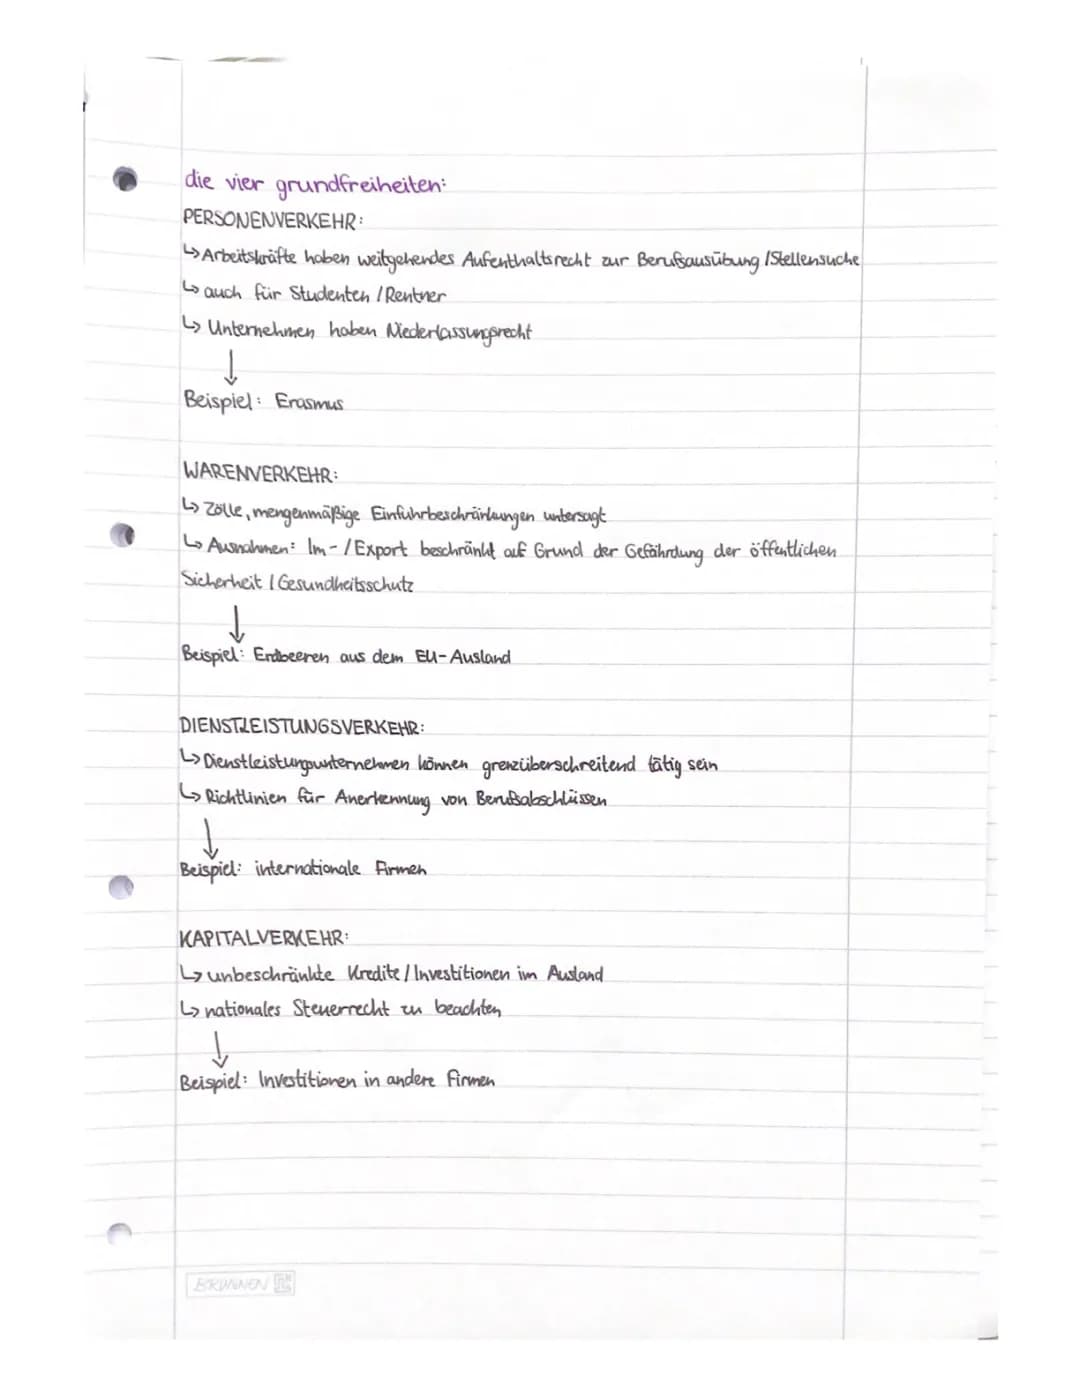 die vier grundfreiheiten:
PERSONENVERKEHR:
↳ Arbeitskräfte haben weitgehendes Aufenthaltsrecht zur Berufsausübung / Stellensuche
↳ auch für Studenten / Rentner
↳ Unternehmen haben Niederlassungsrecht
↓
Beispiel: Erasmus
WARENVERKEHR:
↳ Zölle, mengenmäßige Einfuhrbeschränkungen untersagt
↳ Ausnahmen: Im- / Export beschränkt auf Grund der Gefährdung der öffentlichen
Sicherheit / Gesundheitsschutz
↓
Beispiel: Erdbeeren aus dem EU-Ausland
DIENSTLEISTUNGSVERKEHR:
↳ Dienstleistungsunternehmen können grenzüberschreitend tätig sein
↳ Richtlinien für Anerkennung von Berufsabschlüssen
↓
Beispiel: internationale Firmen
KAPITALVERKEHR:
↳ unbeschränkte Kredite / Investitionen im Ausland
↳ nationales Steuerrecht zu beachten
↓
Beispiel: Investitionen in andere Firmen
BRUNNEN